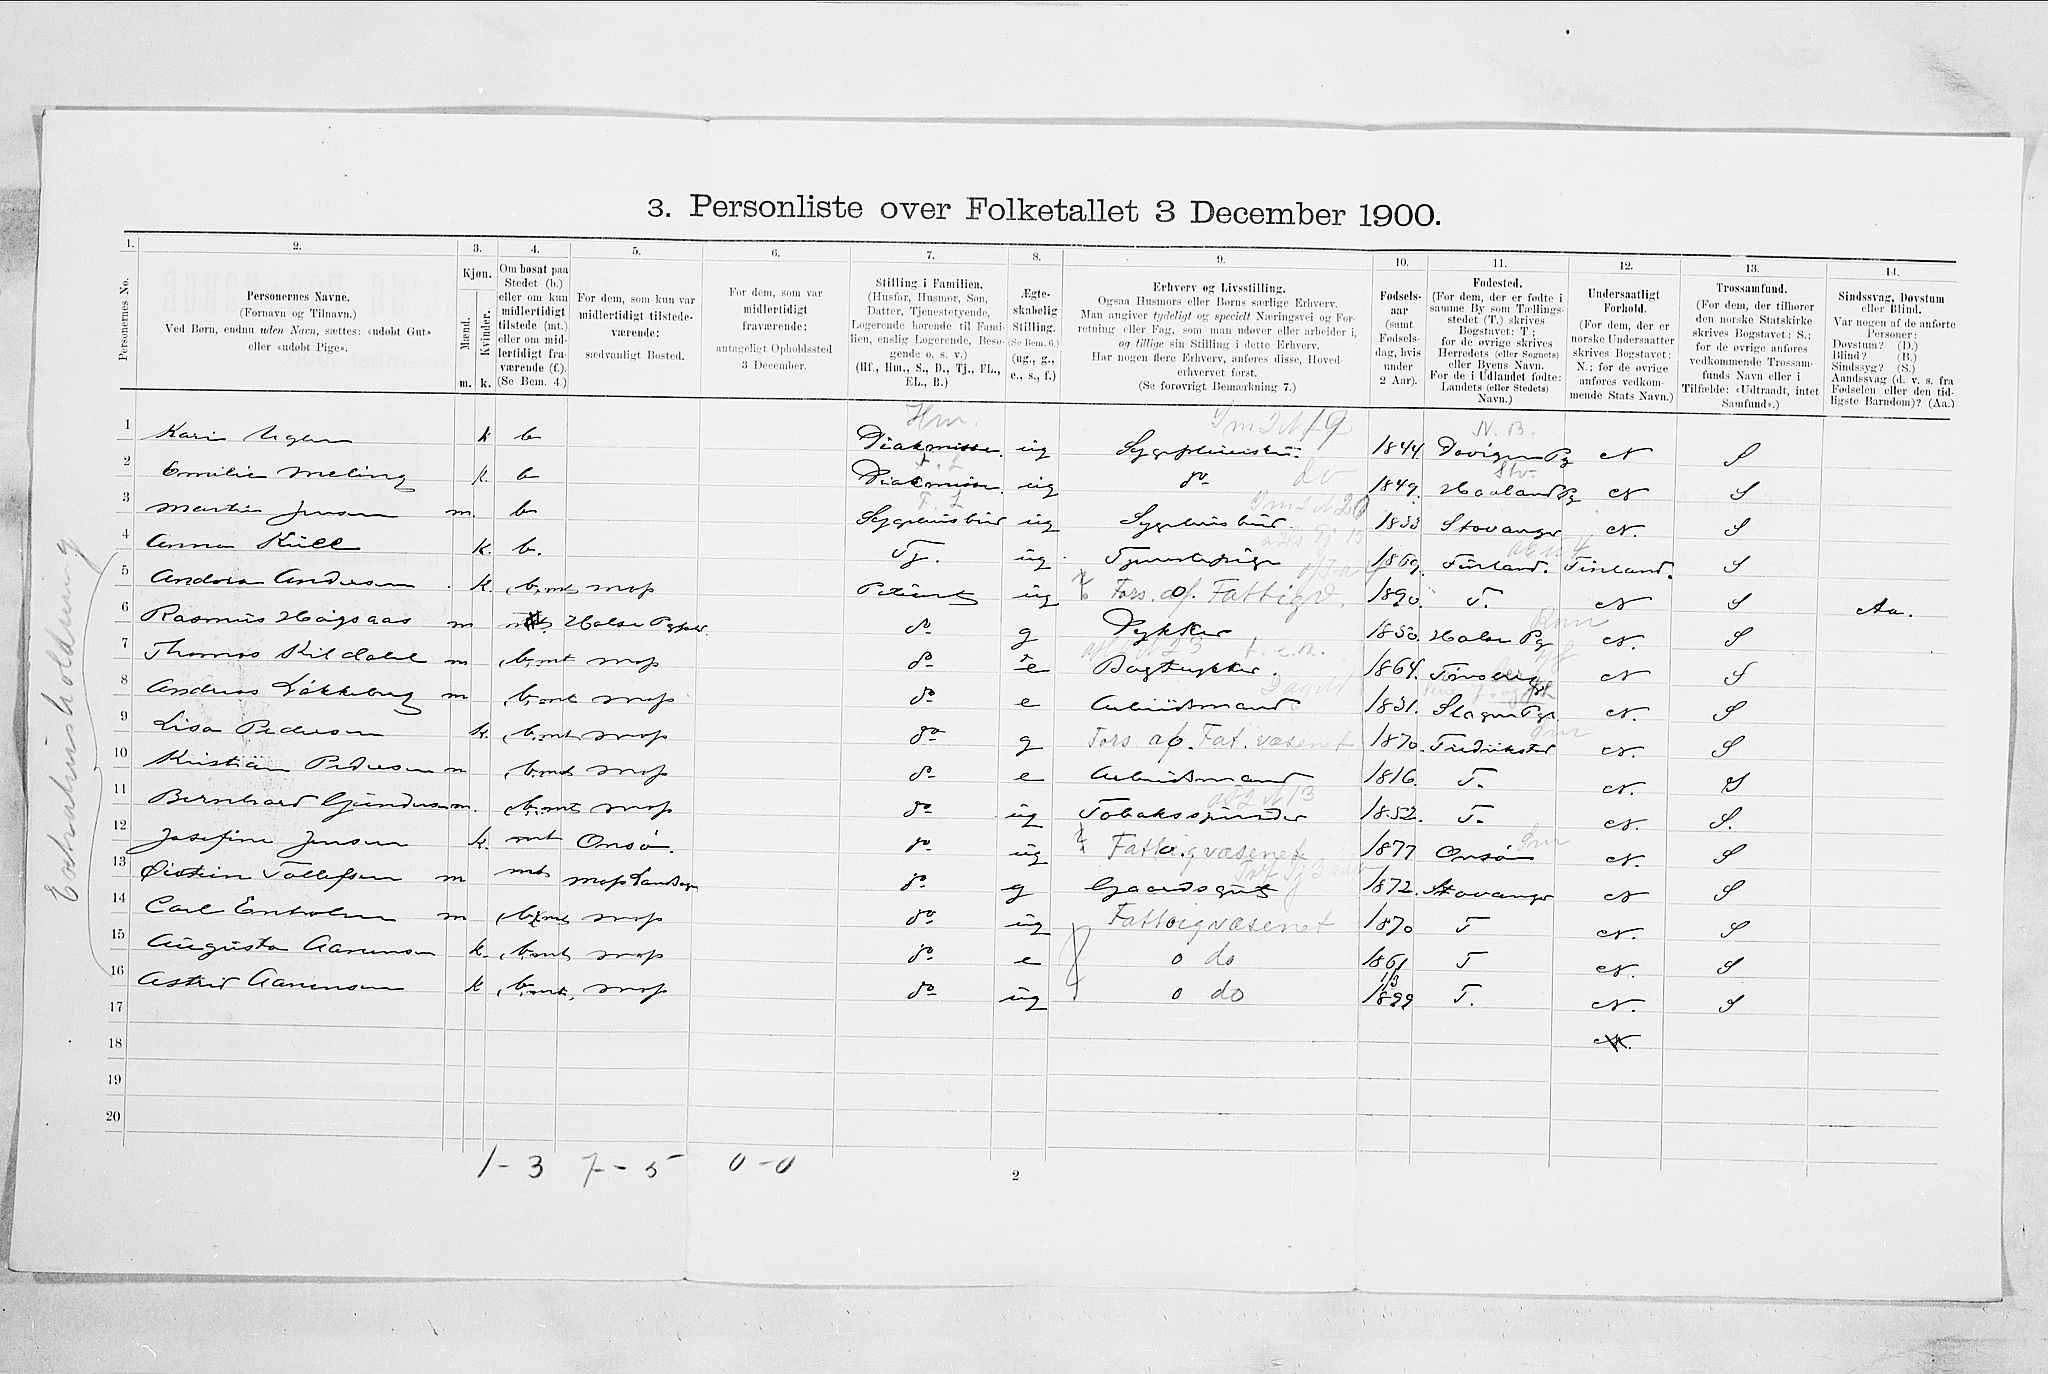 3. Personliste over Folketallet 3 December 1900.
1. 2. 3. 4. 5. 6. 7. 8. 9. 10. 11. 12. 13. 14.
Personernes No.
Personernes Navne.
(Fornavn og Tilnavn.)
Ved Børn, endnu uden Navn, sættes: «udøbt Gut»
eller «udøbt Pige».
Kjøn.
Mænd.
Kvinder.
m. k.
Om bosat paa
Stedet (b.)
eller om kun
midlertidigt
tilstede (mt.)
eller om mid-
lertidigt fra-
værende (f.).
(Se Bem. 4.)
For dem, som kun var
midlertidigt tilstede-
værende:
sædvanligt Bosted.
For dem, som var
midlertidigt
fraværende:
antageligt Opholdssted
3 December.
Stilling i Familien.
(Husfar, Husmor, Søn,
Datter, Tjenestetyende,
Logerende hørende til Fami-
lien, enslig Logerende, Besø-
gende o. s. v.)
(Hf., Hm., S., D., Tj., FL.,
EL., B.)
Ægte-
skabelig
Stilling.
(Se Bem. 6.)
(ug., g.,
e., s., f.)
Erhverv og Livsstilling.
Ogsaa Husmors eller Børns særlige Erhverv.
Man angiver tydeligt og specielt Næringsvei og For-
retning eller Fag, som man udøver eller arbeider i,
og tillige sin Stilling i dette Erhverv.
Har nogen flere Erhverv, anføres disse, Hoved-
erhvervet først.
(Se forøvrigt Bemærkning 7.)
Fødsels-
aar
(samt
Fødsels-
dag, hvis
under
2 Aar).
Fødested.
(For dem, der er fødte i
samme By som Tællings-
stedet (T.) skrives
Bogstavet: T.;
for de øvrige skrives
Herredets (eller Sognets)
eller Byens Navn.
For de i Udlandet fødte:
Landets (eller Stedets)
Navn.)
Undersaatligt
Forhold.
(For dem, der er
norske Undersaatter
skrives Bogstavet:
N.; for de øvrige
anføres vedkom-
mende Stats Navn.)
Trossamfund.
(For dem, der tilhører
den norske Statskirke
skrives Bogstavet: S.;
for de øvrige anføres
vedkommende Trossam-
funds Navn eller i
Tilfælde: «Udtraadt, intet
Samfund».)
Sindssvag, Døvstum
eller Blind.
Var nogen af de anførte
Personer:
Døvstum? (D.)
Blind? (B.)
Sindssyg? (S.)
Aandssvag (d. v. s. fra
Fødselen eller den tid-
ligste Barndom)? (Aa.)
Hm. N. B.
1 Kari k b Diakonisse. ug 1844 N S
2 Emilie Meling k. b Diakonisse. ug do 1849. Haaland Pg N S
3 Martin Jensen m. b ug 1833 Stavanger N. S
4 Anna Küll k. b. Tj. ug. Tjenestepige 1869. Finland. Finland. S
5 Andrea Andresen k. b, mt moss Patient ug Fors. af. Fattigv. 1890. T. N S Aa.
6 Rasmus m Halse do g Dykker 1850. Halse Pg N. S
7 Thomas Kildahl m b, mt moss do e 1864. N S
8 Andreas Løkkeberg m b, mt moss do e Arbeidsmand 1831. Slagen N. S
9 Lisa Pedersen k. b, mt moss do g Fors. af. Fat. væsenet 1870. Fredrikstad N. S
10 Kristian Pedersen m b, mt moss do e Arbeidsmand 1816. T. N. S
11 Bernhard Gundersen m. b, mt moss do ug Tobaksspinder 1852. T. N. S.
12 Josefine Jensen k. mt Onsø. do ug Fattigvæsenet 1877 Onsø N. S
13 Øistein Tollefsen m mt moss Landsogn do g Gaardsgut 1872. Stavanger N S
14 Carl Enholm m b, mt moss do ug Fattigvæsenet 1870 T N. S
15 Augusta Aanensen k. b, mt moss do e o do 1861 T N. S
16 Astrid Aanensen k b, mt, moss do ug o do 1/3 1899 T. N. S
17
18 N.
19
20
1-3 7-5 0-0
2
Extrahusholdning